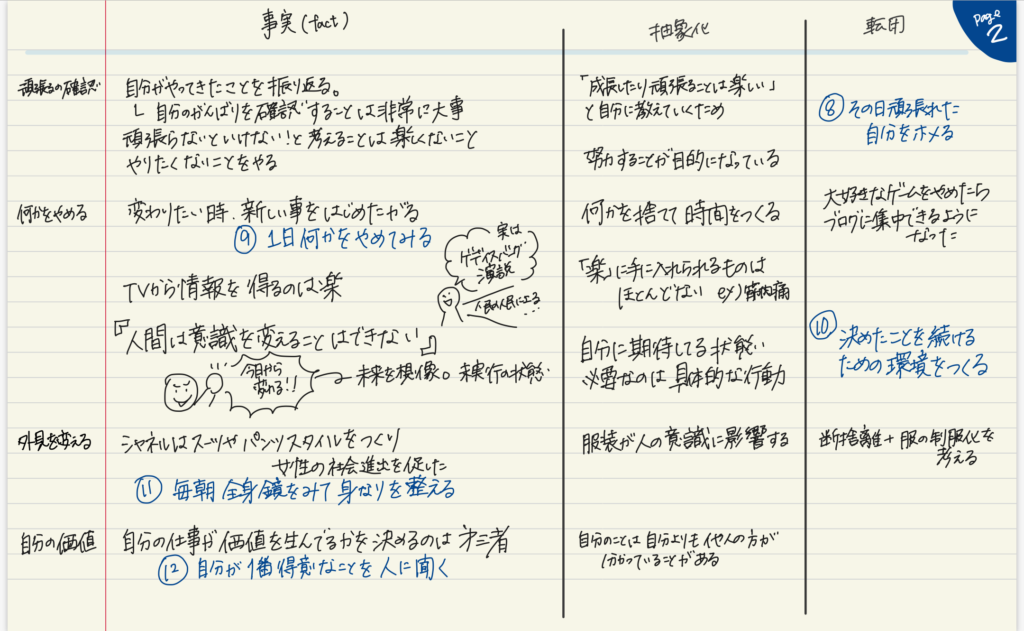 事実(fact)
抽象化
転用
page
2
頑張るの確認
自分がやってきたことを振り返る。
└ 自分のがんばりを確認することは非常に大事
頑張らないといけない!と考えることは楽しくないこと
やりたくないことをやる
「成長したり頑張ることは楽しい」
と自分に教えていくため
努力することが目的になっている
⑧ その日頑張れた
自分をホメる
何かをやめる
変わりたい時、新しい事をはじめたがる
⑨ 1日何かをやめてみる
何かを捨てて時間をつくる
大好きなゲームをやめたら
ブログに集中できるように
なった
TVから情報を得るのは楽
実は
ゲティスバーグ
演説
人民の人民による
...
「楽」に手に入れられるものは
ほとんどない ex)筋肉痛
『人間は意識を変えることはできない』
今日から
変わる!!
未来を想像。未実行の状態
自分に期待してる状態
必要なのは具体的な行動
⑩ 決めたことを続ける
ための環境をつくる
外見を変える
シャネルはスーツやパンツスタイルをつくり
女性の社会進出を促した
⑪ 毎朝全身鏡をみて身なりを整える
服装が人の意識に影響する
断捨離+服の制服化を
考える
自分の価値
自分の仕事が価値を生んでるかを決めるのは第三者
⑫ 自分が1番得意なことを人に聞く
自分のことは自分よりも他人の方が
分かっていることがある